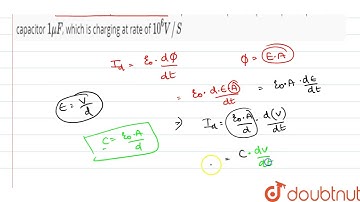 capacitor 1μF, which is charging at rate of 10⁶V/S
I_d = ε₀. dφ/dt φ = E.A
= ε₀. d.E.A/dt = ε₀.A. dE/dt
E = V/d
⇒ I_d = ε₀.A/d . d(V)/dt
C = ε₀.A/d
= C. dV/dt
doubtnut